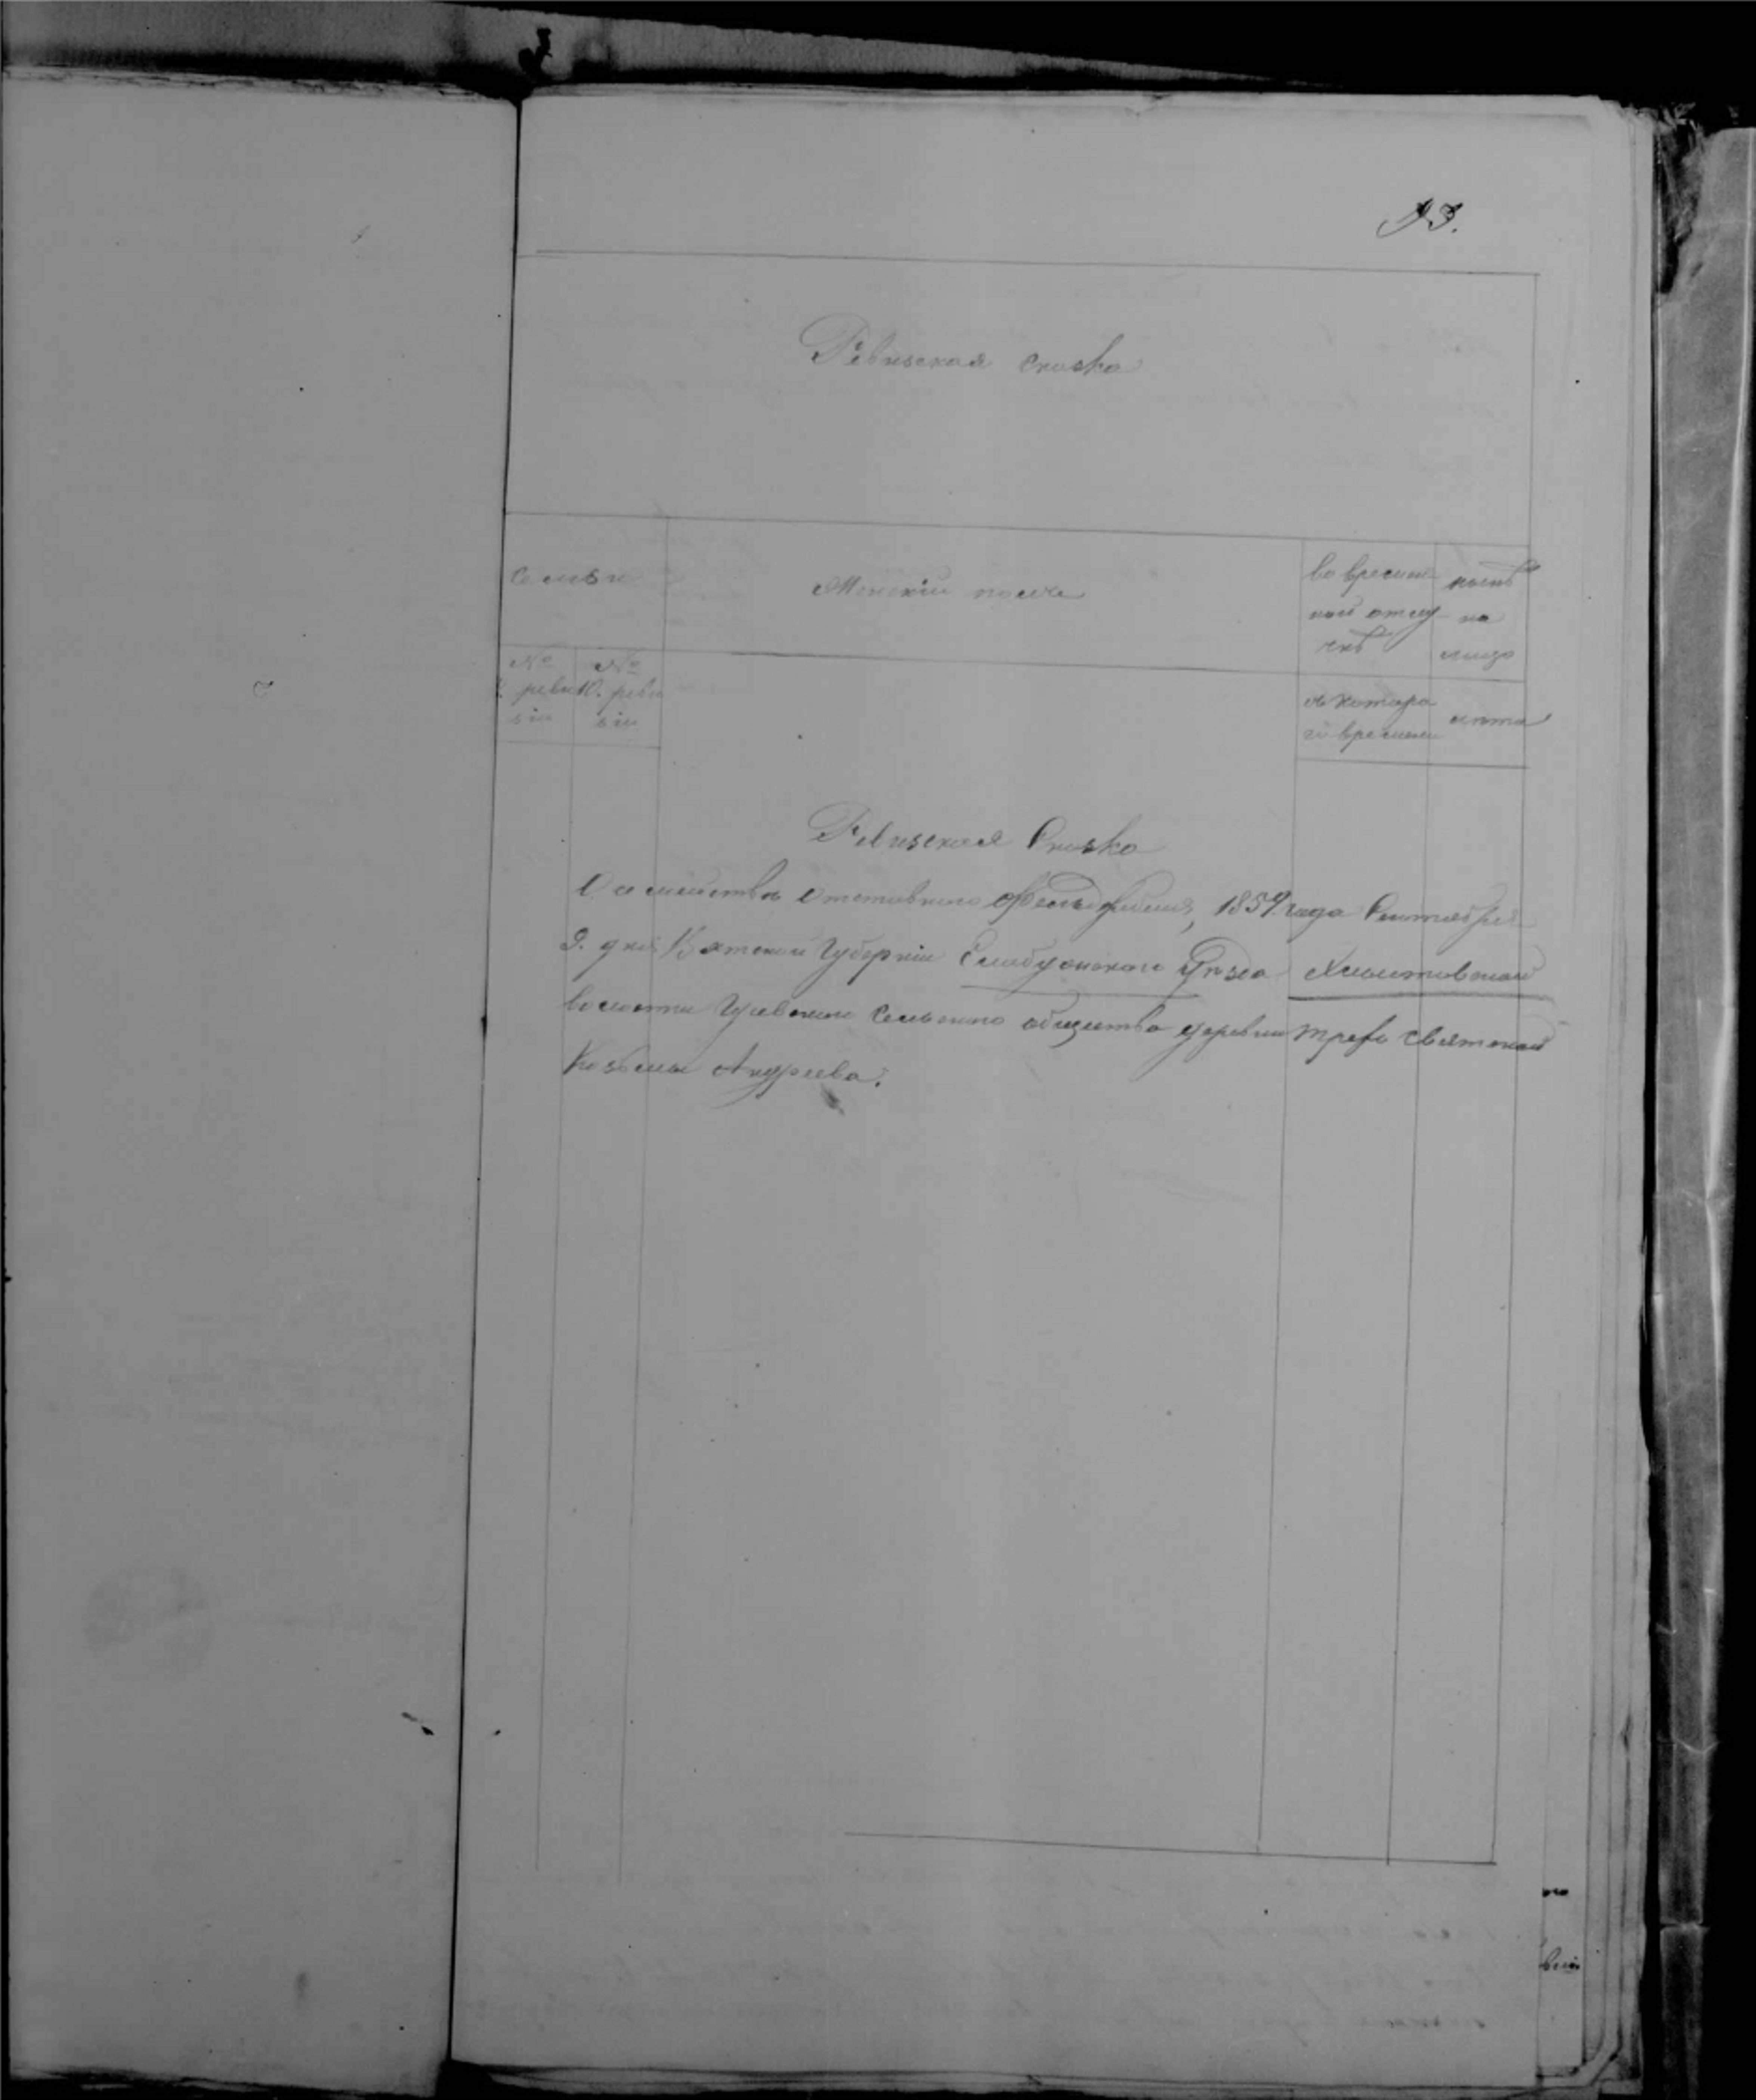 93.
Ревизская сказка
Семьи
Женскій полъ
во времен-
ной отлу-
чкѣ
нынѣ
на
лицо
№
ревизіи
№
10. ревизіи
съ котора
го времени
лѣта
Ревизская Сказка
О семействѣ отставнаго 1858 года Сентября
9. дня Вятской Губерніи Елабужскаго Уѣзда
волости Сельскаго общества деревни Трехъ Святской
Козьмы Андреева.